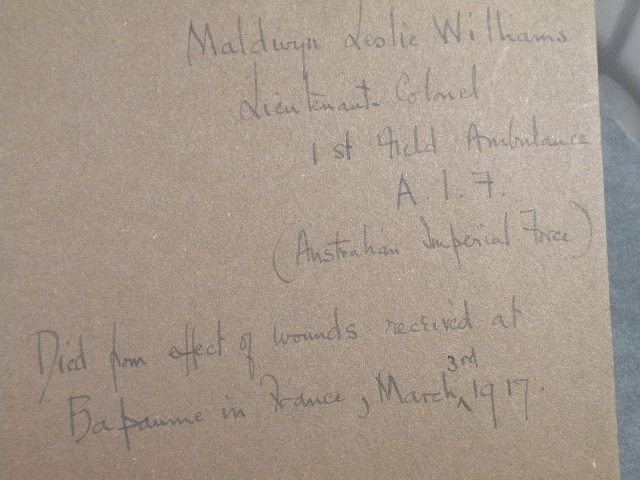 Maldwyn Leslie Williams
Lieutenant-Colonel
1st Field Ambulance
A.I.F.
(Australian Imperial Force)
Died from effect of wounds received at
Bapaume in France, March 3rd 1917.